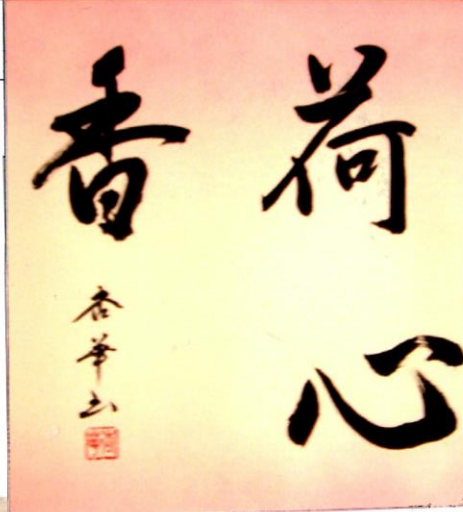 荷心
香
杏華書